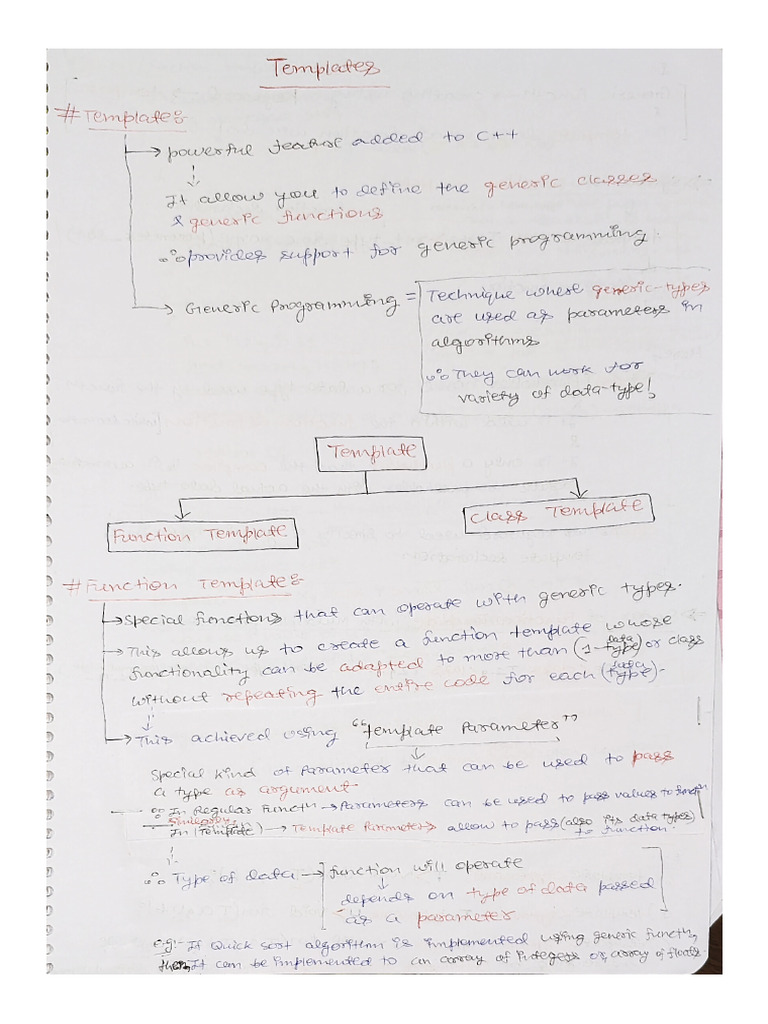 Templates
# Templates:-
→ powerful feature added to C++
It allow you to define the generic classes
& generic functions
∴ provides support for generic programming.
→ Generic Programming = Technique where generic-types
are used as parameters in
algorithms
∴ They can work for
variety of data-type!
Template
Function Template
Class Template
# Function Template:-
→ Special functions that can operate with generic types.
→ This allows us to create a function template whose
functionality can be adapted to more than (1-data type) or class
without repeating the entire code for each (data type).
→ This achieved using "Template Parameter"
Special kind of Parameter that can be used to pass
a type as argument
∴ In Regular Functn → Parameters can be used to pass values to functn
Similarly,
In (Template) → Template Parameters allow to pass (also its data types)
to function.
∴ Type of data → function will operate
depends on type of data passed
as a parameter
e.g:- If Quick sort algorithm is implemented using generic functn,
then It can be implemented to an array of integers or array of floats.